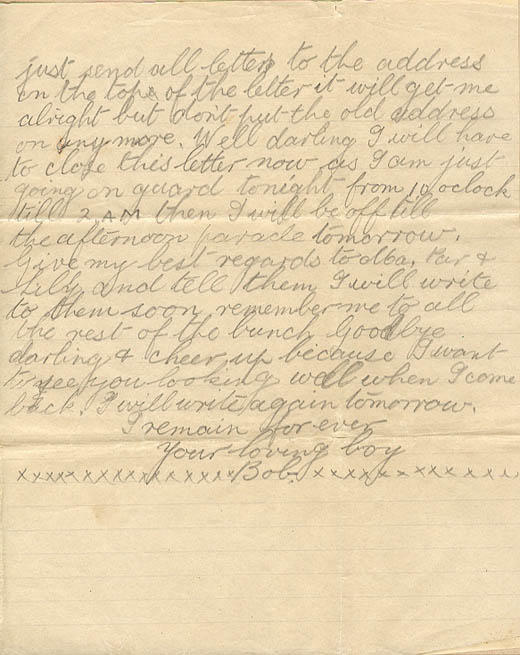 just send all letters to the address
on the top of the letter it will get me
alright but don't put the old address
on any more. Well darling I will have
to close this letter now as I am just
going on guard tonight from 10 oclock
till 2 AM then I will be off till
the afternoon parade tomorrow.
Give my best regards to Ma, Par &
Lily and tell them I will write
to them soon remember me to all
the rest of the bunch Goodbye
darling & cheer up because I want
to see you looking well when I come
back. I will write again tomorrow.
I remain for ever
Your loving boy
xxxxxxxxxxxxxxxxx Bob. xxxxxxxxxxxxxxx